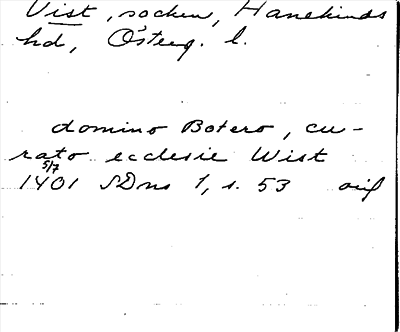 Vist, socken, Hanekinds
hd, Österg. l.
domino Botero, cu-
rato ecclesie Wist
5/7
1401 SDns 1, s. 53